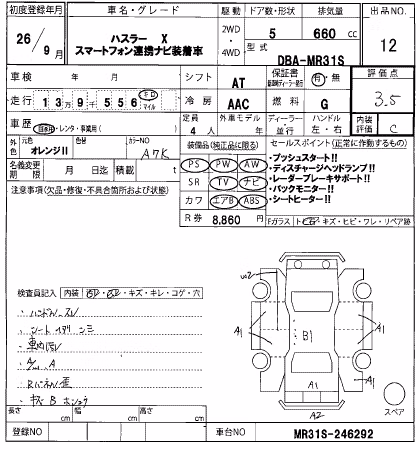 初度登録年月 車名・グレード 駆動 ドア数・形状 排気量 出品NO.
26/9月 ハスラー X 2WD・4WD 5 660cc 12
スマートフォン連携ナビ装着車 型式 DBA-MR31S
車検 年 月 シフト AT 保証書 有・無 評価点
走行 139千556 マイル 冷房 AAC 燃料 G 3.5
車歴 自家用・レンタ・事業用( ) 定員 4人 外車モデル 年 ディーラー・並行 ハンドル 左・右 内装評価 C
外色 元色 オレンジII 色替 カラーNO A7K
装備品(純正品に限る) セールスポイント(正常に作動するもの)
名義変更期限 月 日迄 積載 t
PS PW AW
SR TV ナビ
カワ エアB ABS
・プッシュスタート!!
・ディスチャージヘッドランプ!!
・レーダーブレーキサポート!!
・バックモニター!!
・シートヒーター!!
注意事項(欠品・修復・不具合箇所および状態)
R券 8,860円 Fガラス トビ石・キズ・ヒビ・ワレ・リペア跡
検査員記入 内装 ・キズ・キレ・コゲ・穴
・ハンドルスレ
・A
・RパネルE
・キズB
A1
A1
B1
A1
A1
A1
A2
スペア
長さ cm 幅 cm 高さ cm
登録NO 車台NO MR31S-246292